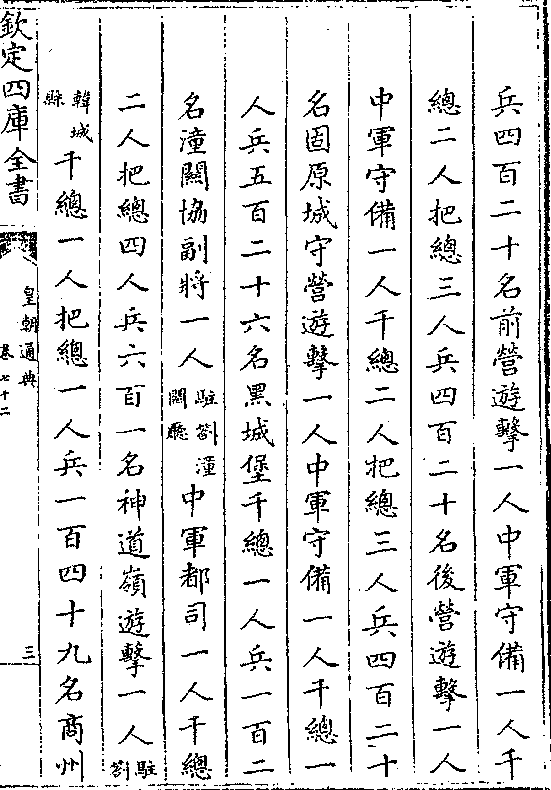 兵四百二十名前營遊擊一人中軍守備一人千
總二人把總三人兵四百二十名後營遊擊一人
中軍守備一人千總二人把總三人兵四百二十
名固原城守營遊擊一人中軍守備一人千總一
人兵五百二十六名黑城堡千總一人兵一百二
名潼關協副將一人駐劄潼關廳中軍都司一人千總
二人把總四人兵六百一名神道嶺遊擊一人駐劄
韓城縣千總一人把總一人兵一百四十九名商州
欽定四庫全書
皇朝通典
卷七十二
三